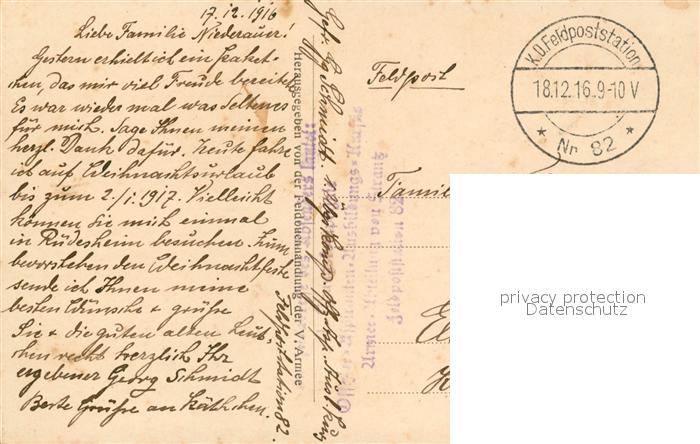 17.12.1916
Liebe Familie Niederauer!
Gestern erhielt ich ein Paket-
chen, das mir viel Freude bereitete.
Es war wieder mal was Seltenes
für mich. Sage Ihnen meinen
herzl. Dank dafür. Heute fahre
ich auf Weihnachtsurlaub
bis zum 2./1. 1917. Vielleicht
können Sie mich einmal
in Rüdesheim besuchen. Zum
bevorstehenden Weihnachtsfeste
sende ich Ihnen meine
besten Wünsche & grüße
Sie & die guten alten Leut-
chen recht herzlich Ihr
ergebener Georg Schmidt
Beste Grüße an Käthchen.
Herausgegeben von der Feldbuchhandlung der V. Armee
Schmidt
Feldpoststation 82.
Armee-Abteilung von Strantz
Feldpoststation 82
Feldpost
K.D. Feldpoststation
18.12.16.9-10 V
* Nr 82 *
Famil
privacy protection
Datenschutz